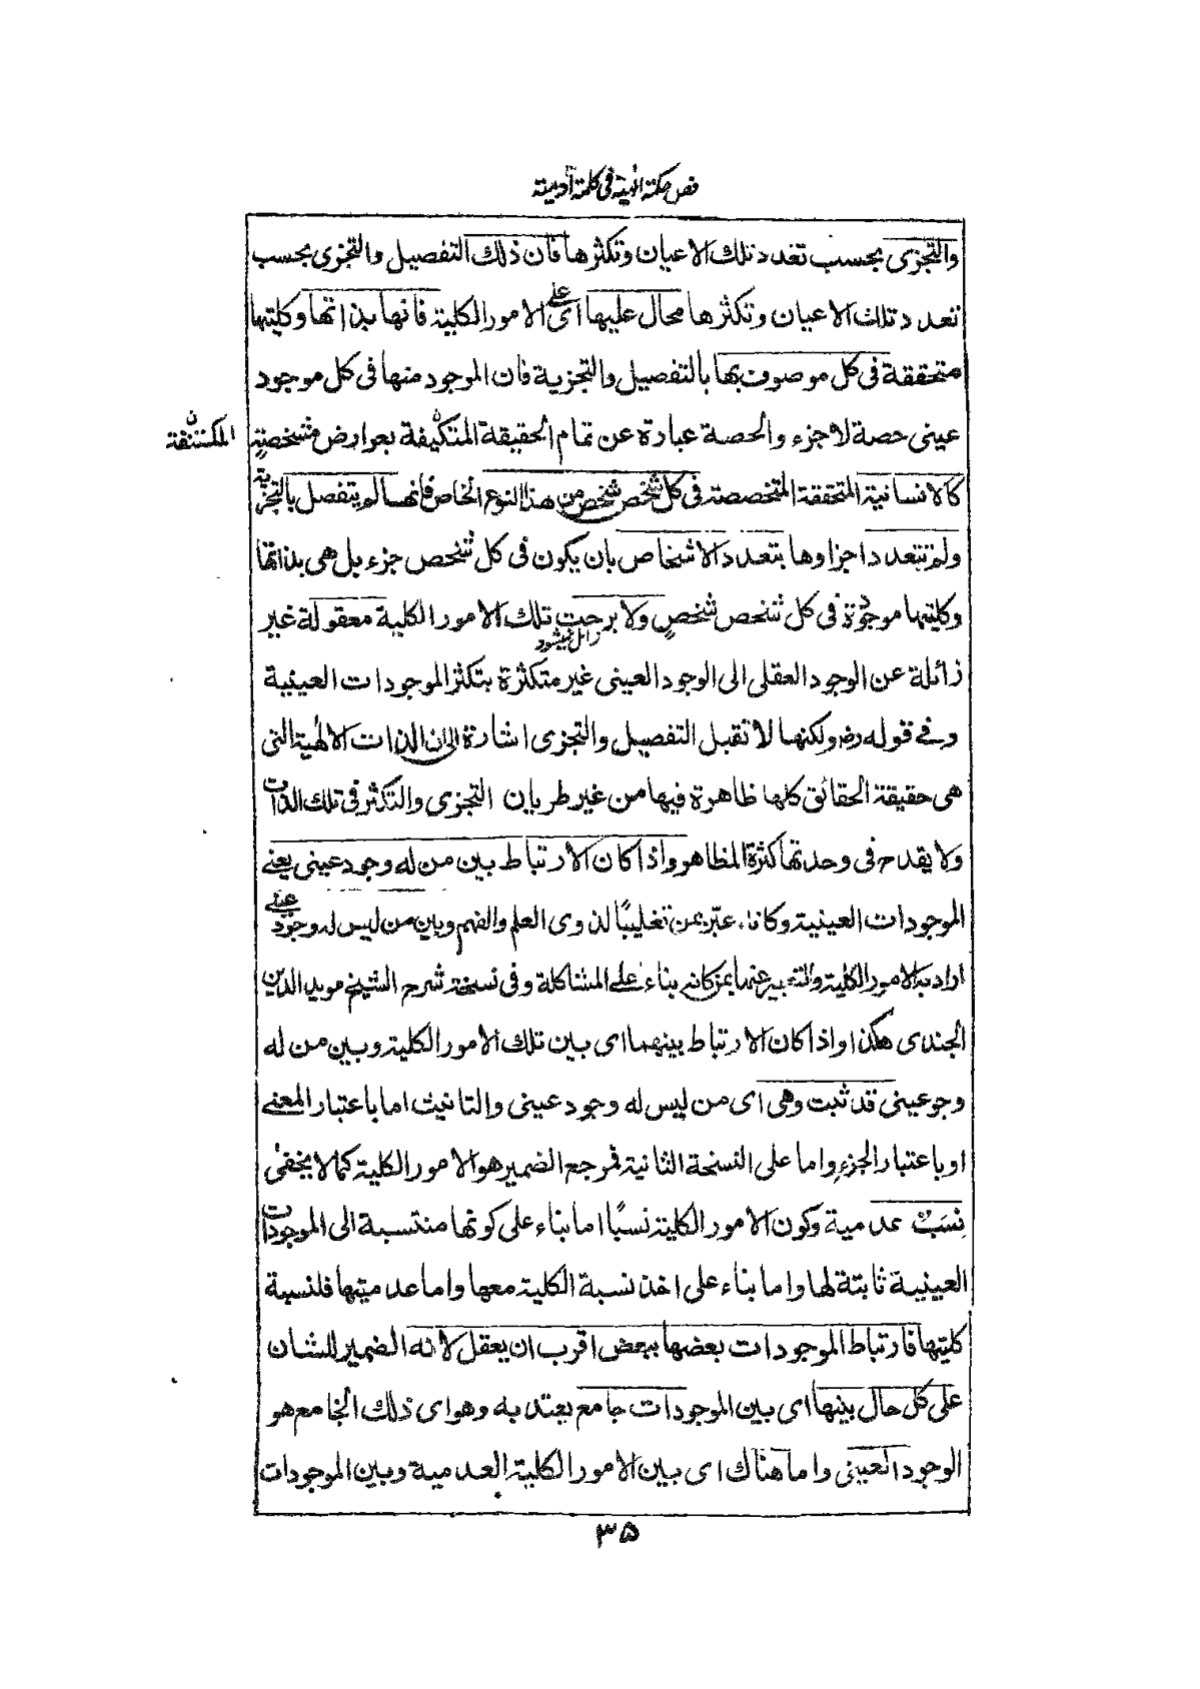 فص حكمة الهية فى كلمة آدمية
والتجزى بحسب تعدد تلك الاعيان وتكثرها فان ذلك التفصيل والتجزى بحسب
تعدد تلك الاعيان وتكثرها محال عليها اى على الامور الكلية فانها بذاتها وكليتها
متحققة فى كل موصوف بها بالتفصيل والتجزية فان الموجود منها فى كل موجود
عينى حصة لا جزء والحصة عبارة عن تمام الحقيقة المتكيفة بعوارض مشخصة
المكتنفة ن
كالانسانية المتحققة المتخصصة فى كل شخص شخص من هذا النوع الخاص فانها لم يتفصل بالتجزية
ولم تتعدد اجزاوها بتعدد الاشخاص بان يكون فى كل شخص جزء بل هى بذاتها
وكليتها موجودة فى كل شخص شخصٍ ولا برحت تلك الامور الكلية معقولة غير
زائل نميشود
زائلة عن الوجود العقلى الى الوجود العينى غير متكثرة بتكثر الموجودات العينية
وفے قوله رضـ ولكنها لا تقبل التفصيل والتجزى اشارة الى ان الذات الالٰهية التى
هى حقيقة الحقائق كلها ظاهرة فيها من غير طريان التجزى والتكثر فى تلك الذات
ولا يقدح فى وحدتها كثرة المظاهر واذا كان الارتباط بين من له وجود عينى يعنے
الموجودات العينية وكانه عبّر بمن تغليبًا لذوى العلم والفهم وبين من ليس له وجود عينے
اراد به الامور الكلية والتعبير عنها بمن كانه بناء على المشاكلة وفى نسخة شرح الشيخ مويد الدين
الجندى هكذا واذا كان الارتباط بينهما اى بين تلك الامور الكلية وبين من له
وجو عينى قد ثبت وهى اى من ليس له وجود عينى والتانيث اما باعتبار المعنے
او باعتبار الجزءِ واما على النسخة الثانية فمرجع الضمير هو الامور الكلية كما لا يخفىٰ
نِسَبٌ عدمية وكون الامور الكلية نسبًا اما بناء على كونها منتسبة الى الموجودات
العينية ثابتة لها واما بناء على اخذ نسبة الكلية معها واما عدميتها فلنسبة
كليتها فارتباط الموجودات بعضها ببعض اقرب ان يعقل لانه الضمير للشان
على كل حال بينها اى بين الموجودات جامع يعتد به وهو اى ذلك الجامع هو
الوجود العينى واما هناك اى بين الامور الكلية العدمية وبين الموجودات
۳۵